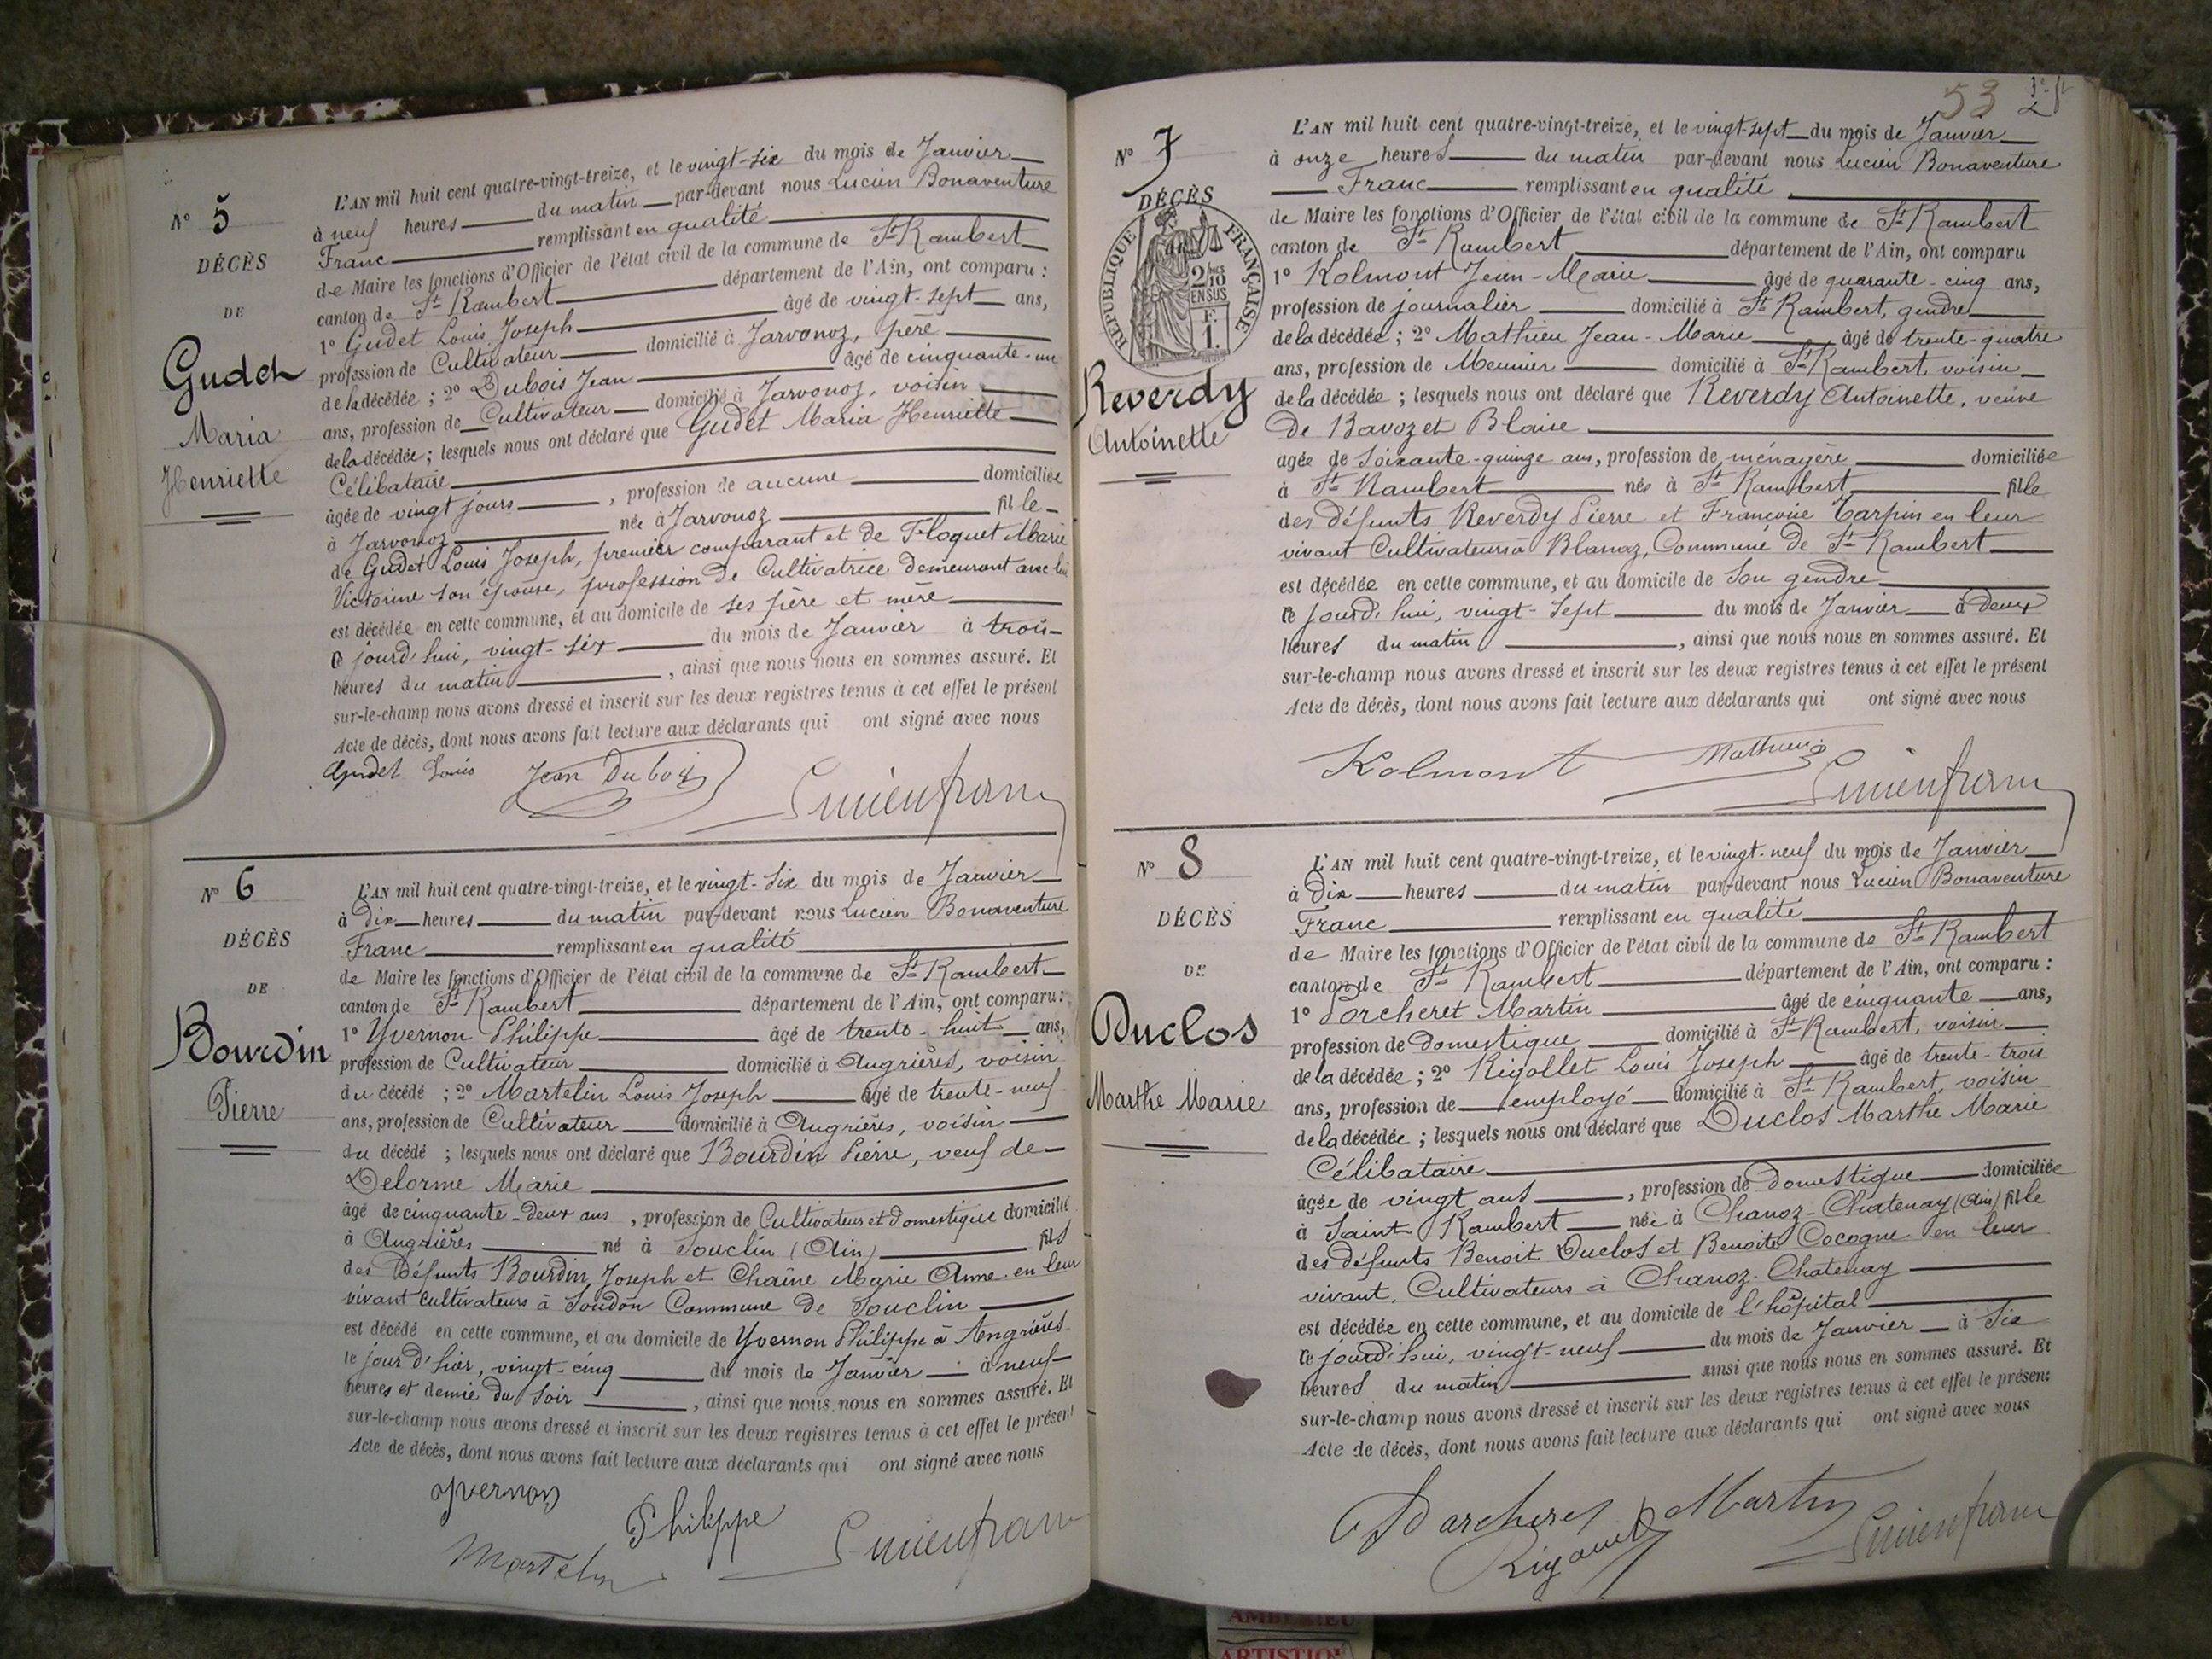 N° 5
DÉCÈS
DE
Gudet
Maria
Henriette
L'AN mil huit cent quatre-vingt-treize, et le vingt-six du mois de Janvier
à neuf heures du matin par-devant nous Lucien Bonaventure
Franc remplissant en qualité
de Maire les fonctions d'Officier de l'état civil de la commune de St Rambert
canton de St Rambert département de l'Ain, ont comparu :
1° Gudet Louis Joseph âgé de vingt-sept ans,
profession de Cultivateur domicilié à Javornoz, père
de la décédée ; 2° Dubois Jean âgé de cinquante-un
ans, profession de Cultivateur domicilié à Javornoz, voisin
de la décédée ; lesquels nous ont déclaré que Gudet Maria Henriette
Célibataire
âgée de vingt jours , profession de aucune domiciliée
à Javornoz née à Javornoz fille
de Gudet Louis Joseph, premier comparant et de Floquet Marie
Victorine son épouse, profession de Cultivatrice demeurant avec lui
est décédée en cette commune, et au domicile de ses père et mère
ce jourd'hui, vingt-six du mois de Janvier à trois
heures du matin , ainsi que nous nous en sommes assuré. Et
sur-le-champ nous avons dressé et inscrit sur les deux registres tenus à cet effet le présent
Acte de décès, dont nous avons fait lecture aux déclarants qui ont signé avec nous
Gudet Louis Jean Dubois Lucien franc
N° 6
DÉCÈS
DE
Bourdin
Pierre
L'AN mil huit cent quatre-vingt-treize, et le vingt-six du mois de Janvier
à dix heures du matin par-devant nous Lucien Bonaventure
Franc remplissant en qualité
de Maire les fonctions d'Officier de l'état civil de la commune de St Rambert
canton de St Rambert département de l'Ain, ont comparu :
1° Yvernon Philippe âgé de trente-huit ans,
profession de Cultivateur domicilié à Angrières, voisin
du décédé ; 2° Martelin Louis Joseph âgé de trente-neuf
ans, profession de Cultivateur domicilié à Angrières, voisin
du décédé ; lesquels nous ont déclaré que Bourdin Pierre, veuf de
Delorme Marie
âgé de cinquante-deux ans , profession de Cultivateur et domestique domicilié
à Angrières né à Souclin (Ain) fils
des défunts Bourdin Joseph et Chaîne Marie Anne en leur
vivant cultivateurs à Soudon Commune de Souclin
est décédé en cette commune, et au domicile de Yvernon Philippe à Angrières
le jour d'hier, vingt-cinq du mois de Janvier à neuf
heures et demie du soir , ainsi que nous nous en sommes assuré. Et
sur-le-champ nous avons dressé et inscrit sur les deux registres tenus à cet effet le présent
Acte de décès, dont nous avons fait lecture aux déclarants qui ont signé avec nous
yvernon
Philippe
Martelin
Lucien franc
53
N° 7
DÉCÈS
RÉPUBLIQUE FRANÇAISE
2 10
EN SUS
F.
1.
Reverdy
Antoinette
L'AN mil huit cent quatre-vingt-treize, et le vingt-sept du mois de Janvier
à onze heures du matin par-devant nous Lucien Bonaventure
Franc remplissant en qualité
de Maire les fonctions d'Officier de l'état civil de la commune de St Rambert
canton de St Rambert département de l'Ain, ont comparu
1° Kolmont Jean-Marie âgé de quarante-cinq ans,
profession de journalier domicilié à St Rambert, gendre
de la décédée ; 2° Mathieu Jean-Marie âgé de trente-quatre
ans, profession de Meunier domicilié à St Rambert voisin
de la décédée ; lesquels nous ont déclaré que Reverdy Antoinette, veuve
de Bavozet Blaise
agée de soixante-quinze ans, profession de ménagère domiciliée
à St Rambert née à St Rambert fille
des défunts Reverdy Pierre et Françoise Tarpin en leur
vivant Cultivateurs à Blanaz, Commune de St Rambert
est décédée en cette commune, et au domicile de Son gendre
ce jourd'hui, vingt-sept du mois de Janvier à deux
heures du matin , ainsi que nous nous en sommes assuré. Et
sur-le-champ nous avons dressé et inscrit sur les deux registres tenus à cet effet le présent
Acte de décès, dont nous avons fait lecture aux déclarants qui ont signé avec nous
Kolmont Mathieu Lucien franc
N° 8
DÉCÈS
DE
Duclos
Marthe Marie
L'AN mil huit cent quatre-vingt-treize, et le vingt-neuf du mois de Janvier
à dix heures du matin par-devant nous Lucien Bonaventure
Franc remplissant en qualité
de Maire les fonctions d'Officier de l'état civil de la commune de St Rambert
canton de St Rambert département de l'Ain, ont comparu :
1° Porcheret Martin âgé de cinquante ans,
profession de domestique domicilié à St Rambert, voisin
de la décédée ; 2° Rigollet Louis Joseph âgé de trente-trois
ans, profession de employé domicilié à St Rambert, voisin
de la décédée ; lesquels nous ont déclaré que Duclos Marthe Marie
Célibataire
âgée de vingt ans , profession de domestique domiciliée
à Saint Rambert née à Chanoz-Chatenay (Ain) fille
des défunts Benoit Duclos et Benoite Cocogne en leur
vivant, Cultivateurs à Chanoz-Chatenay
est décédée en cette commune, et au domicile de l'hôpital
ce jourd'hui, vingt-neuf du mois de Janvier à six
heures du matin ainsi que nous nous en sommes assuré. Et
sur-le-champ nous avons dressé et inscrit sur les deux registres tenus à cet effet le présent
Acte de décès, dont nous avons fait lecture aux déclarants qui ont signé avec nous
Martin
Lucien franc
AMBERIEU
ARTISTIQUE